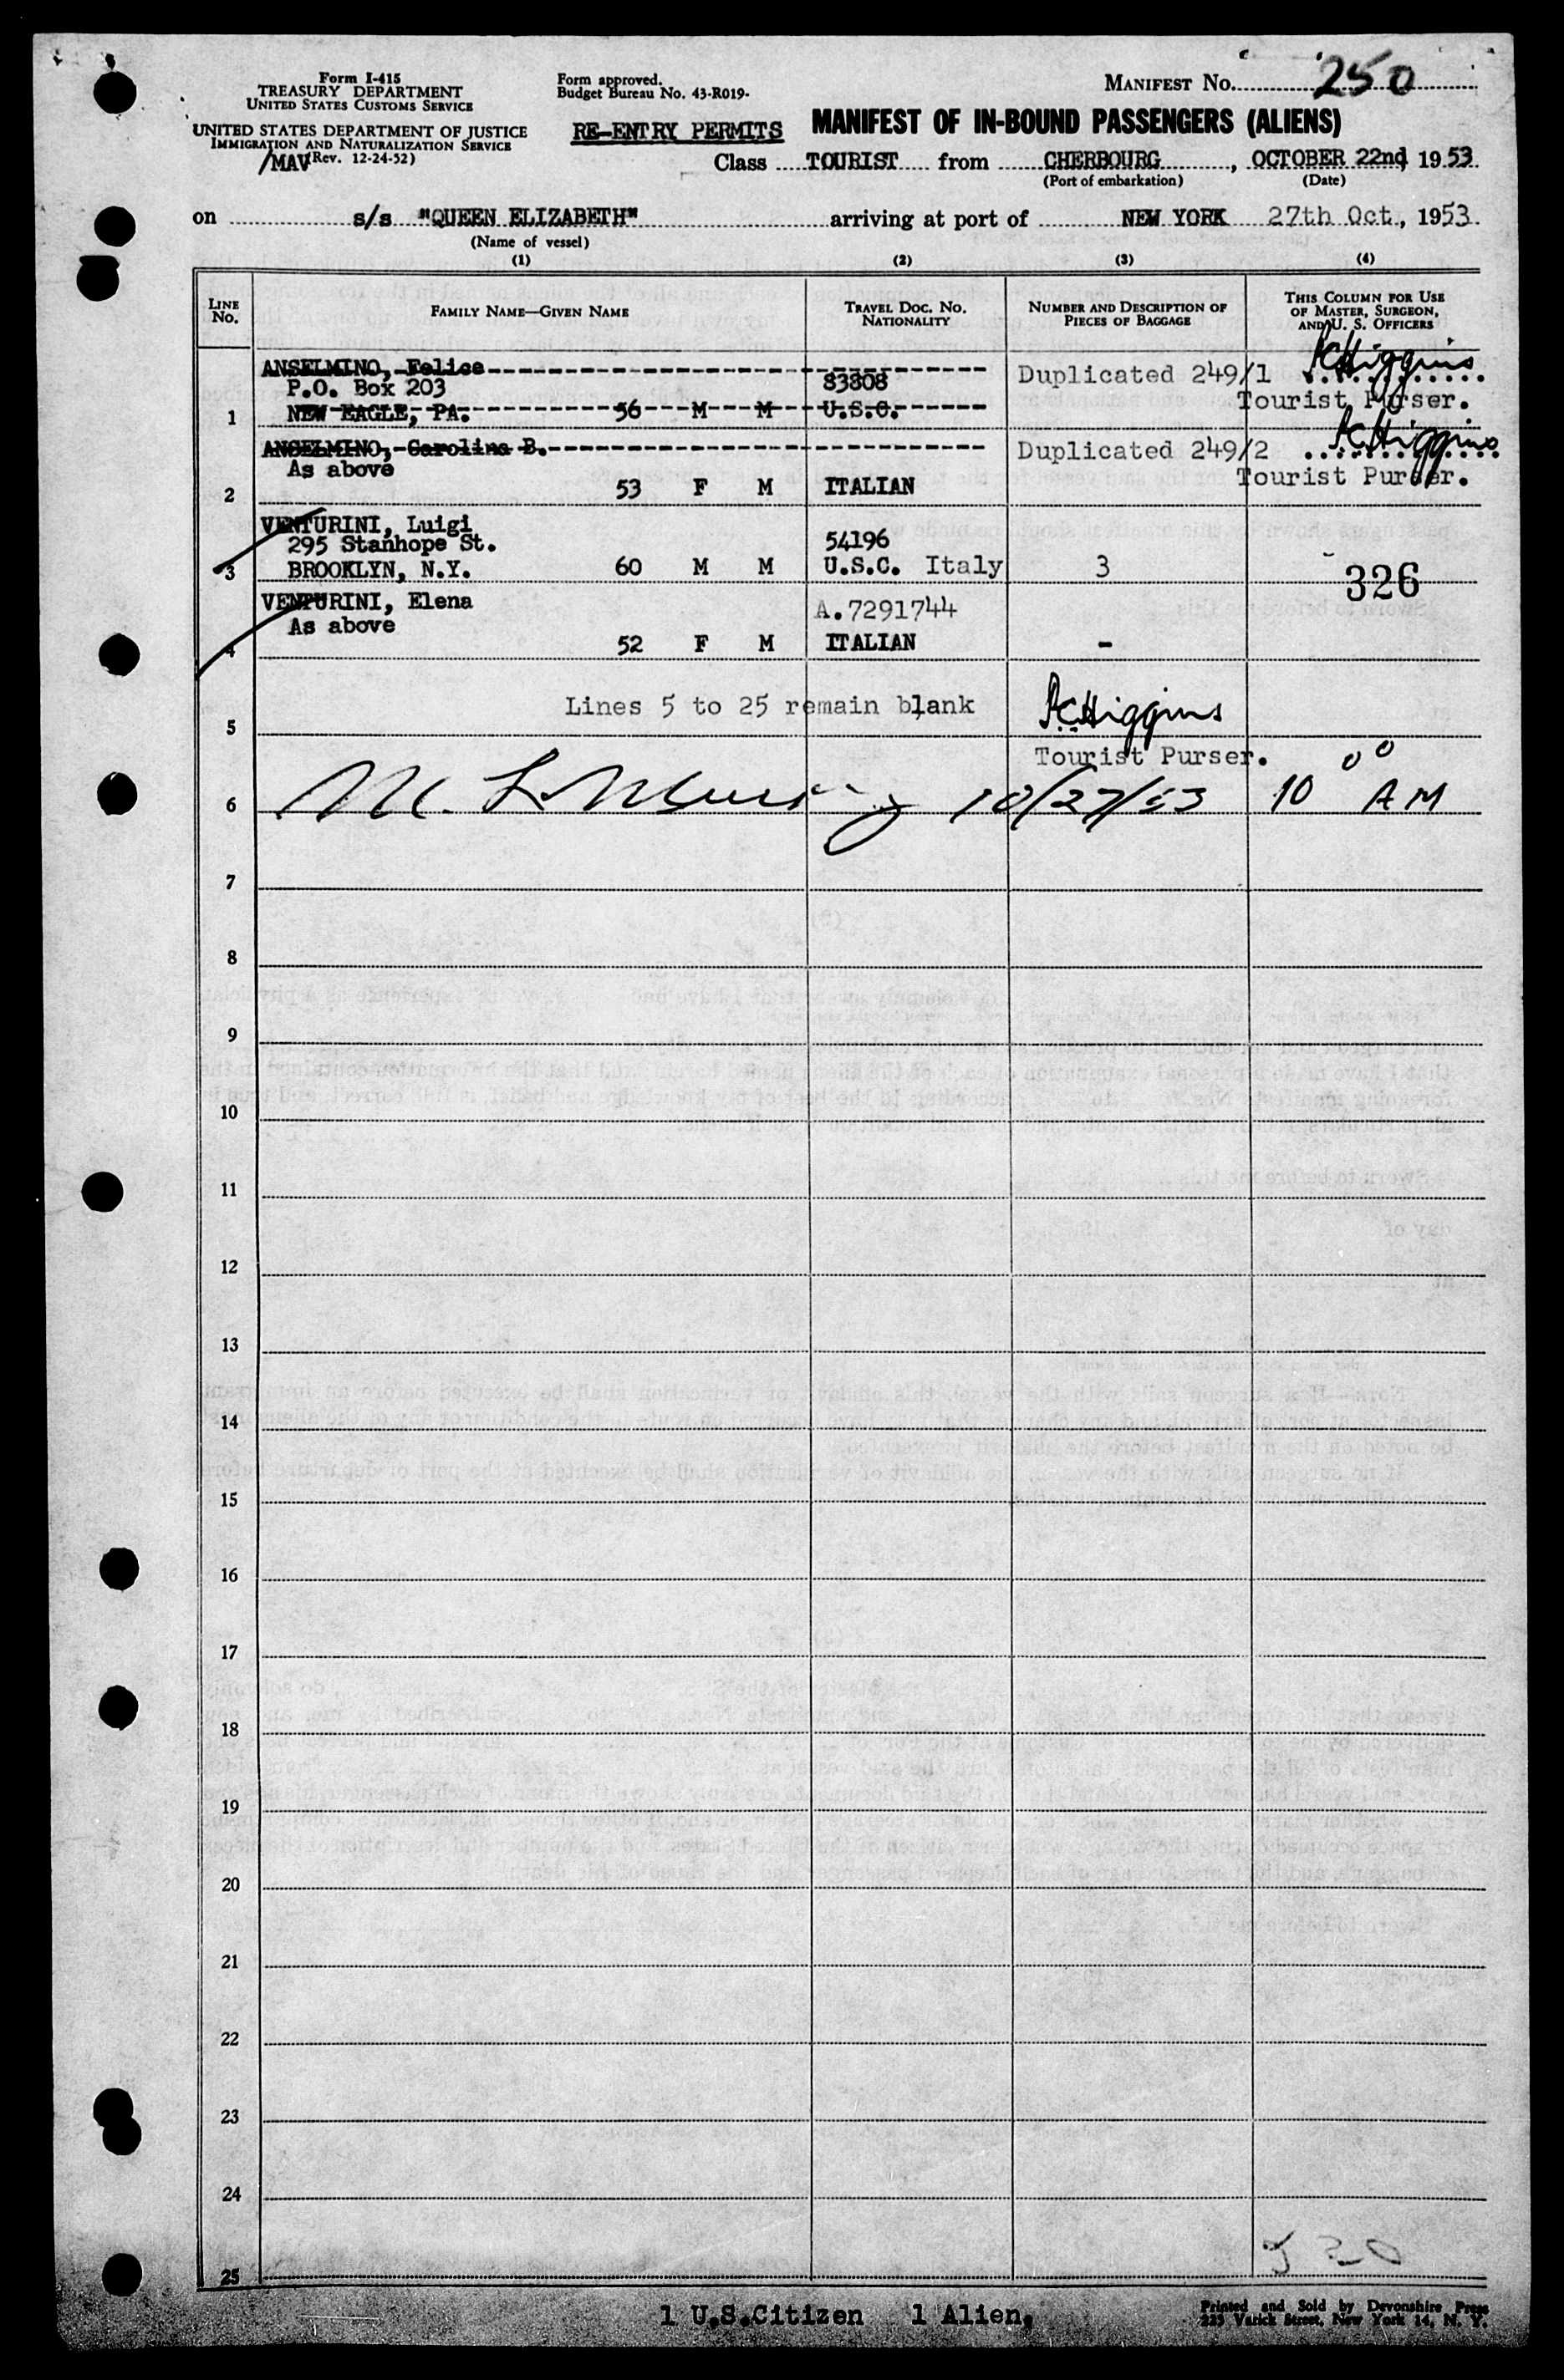 Form I-415
TREASURY DEPARTMENT
UNITED STATES CUSTOMS SERVICE
UNITED STATES DEPARTMENT OF JUSTICE
IMMIGRATION AND NATURALIZATION SERVICE
/MAV (Rev. 12-24-52)
Form approved.
Budget Bureau No. 43-R019-
RE-ENTRY PERMITS
MANIFEST NO. 250
MANIFEST OF IN-BOUND PASSENGERS (ALIENS)
Class TOURIST from CHERBOURG, OCTOBER 22nd, 1953
(Port of embarkation) (Date)
on s/s "QUEEN ELIZABETH" arriving at port of NEW YORK 27th Oct., 1953.
(Name of vessel)
(1) (2) (3) (4)
LINE No. FAMILY NAME—GIVEN NAME TRAVEL DOC. NO. NATIONALITY NUMBER AND DESCRIPTION OF PIECES OF BAGGAGE THIS COLUMN FOR USE OF MASTER, SURGEON, AND U. S. OFFICERS
ANSELMINO, Felice Duplicated 249/1 Higgins
P.O. Box 203 83808
1 NEW EAGLE, PA. 56 M M U.S.C. Tourist Purser.
ANSELMINO, Carolina B. Duplicated 249/2 Higgins
As above Tourist Purser.
2 53 F M ITALIAN
VENTURINI, Luigi
295 Stanhope St. 54196
3 BROOKLYN, N.Y. 60 M M U.S.C. Italy 3 326
VENTURINI, Elena A.7291744
As above
4 52 F M ITALIAN -
Lines 5 to 25 remain blank Higgins
5
Tourist Purser.
6 10/27/53 10 00 AM
7
8
9
10
11
12
13
14
15
16
17
18
19
20
21
22
23
24
25
1 U.S.Citizen 1 Alien.
Printed and Sold by Devonshire Press
225 Varick Street, New York 14, N. Y.